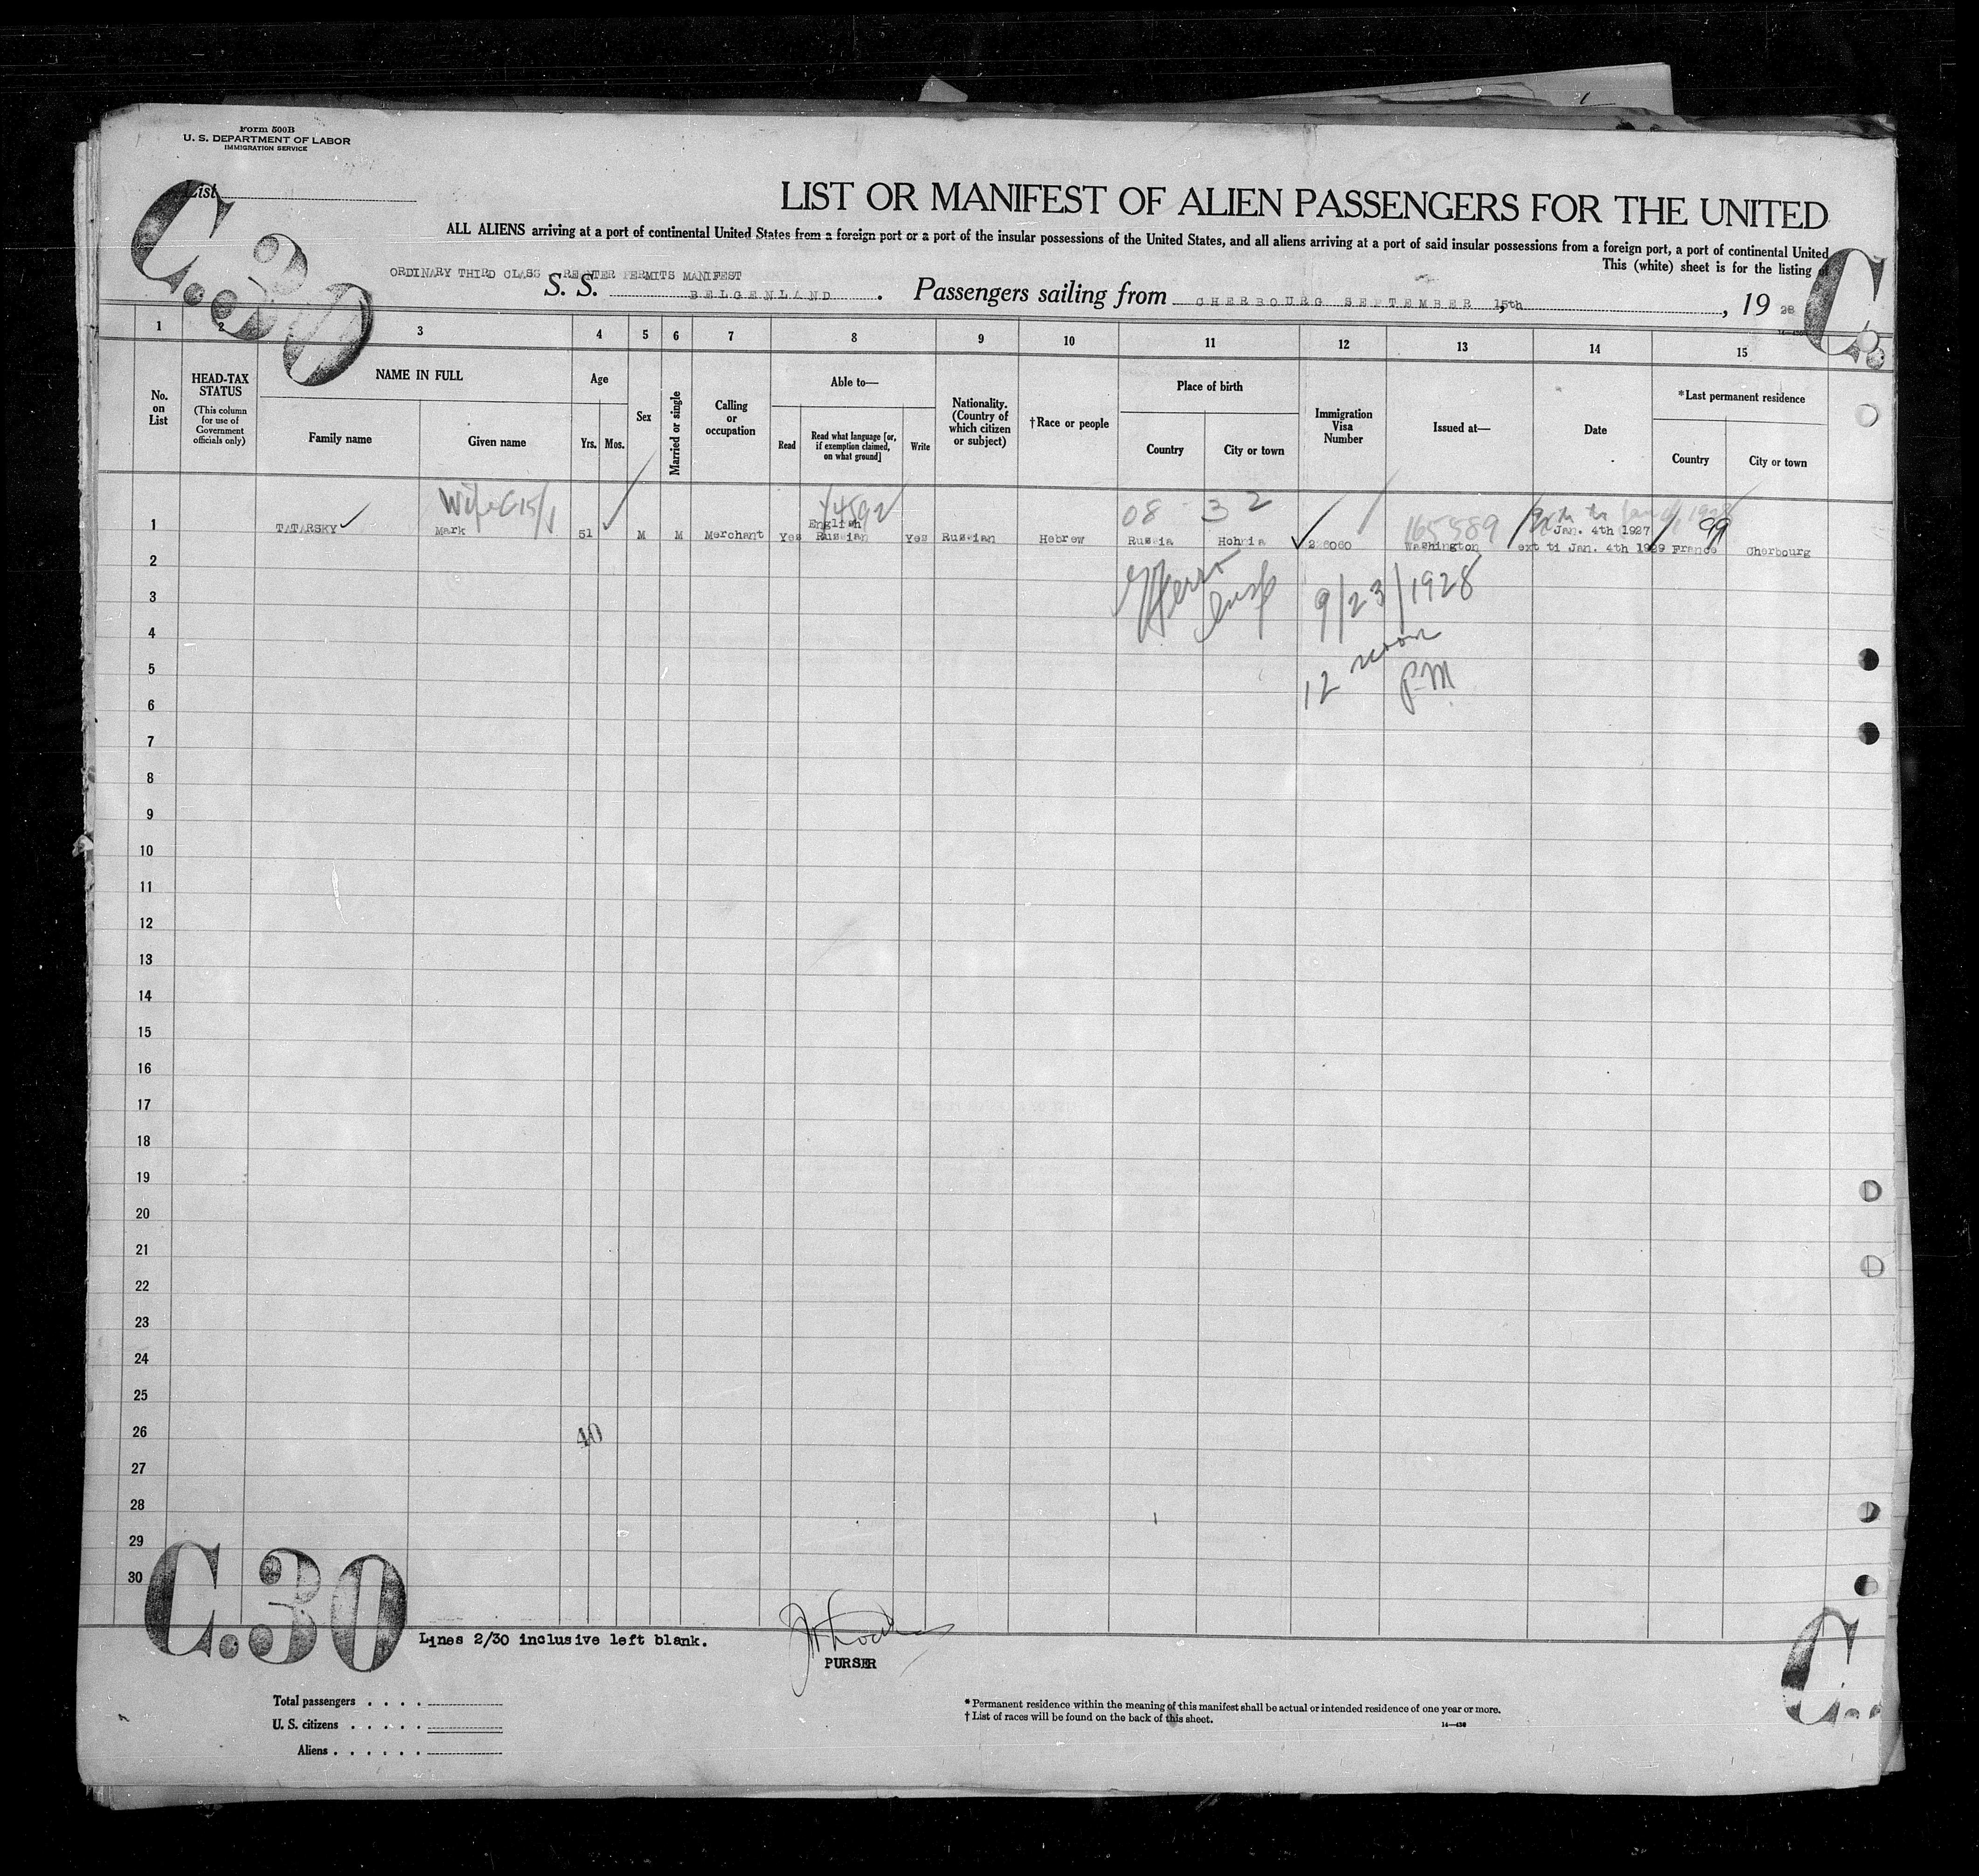 Form 500B
U. S. DEPARTMENT OF LABOR
IMMIGRATION SERVICE
List
C.30
LIST OR MANIFEST OF ALIEN PASSENGERS FOR THE UNITED
ALL ALIENS arriving at a port of continental United States from a foreign port or a port of the insular possessions of the United States, and all aliens arriving at a port of said insular possessions from a foreign port, a port of continental United
This (white) sheet is for the listing of
C.
ORDINARY THIRD CLASS REENTER PERMITS MANIFEST
S. S. BELGENLAND . Passengers sailing from CHERBOURG SEPTEMBER 15th, 1928
1 2 3 4 5 6 7 8 9 10 11 12 13 14 15
No. on List
HEAD-TAX STATUS
(This column for use of Government officials only)
NAME IN FULL
Family name Given name
Age
Yrs. Mos.
Sex
Married or single
Calling or occupation
Able to—
Read
Read what language [or, if exemption claimed, on what ground]
Write
Nationality. (Country of which citizen or subject)
†Race or people
Place of birth
Country City or town
Immigration Visa Number
Issued at—
Date
*Last permanent residence
Country City or town
Wife 08 32 165589 99
English Jan. 4th 1927
1 TATARSKY Mark 51 M M Merchant Yes Russian Yes Russian Hebrew Russia 226060 Washington ext ti Jan. 4th 1929 France Cherbourg
2
3
4
5
6
7
8
9
10
11
12
13
14
15
16
17
18
19
20
21
22
23
24
25
26
27
28
29
30
Insp 9/23/1928
12 noon
P.M
40
C.30
Lines 2/30 inclusive left blank.
PURSER
C.
Total passengers
U. S. citizens
Aliens
* Permanent residence within the meaning of this manifest shall be actual or intended residence of one year or more.
† List of races will be found on the back of this sheet.
14—430